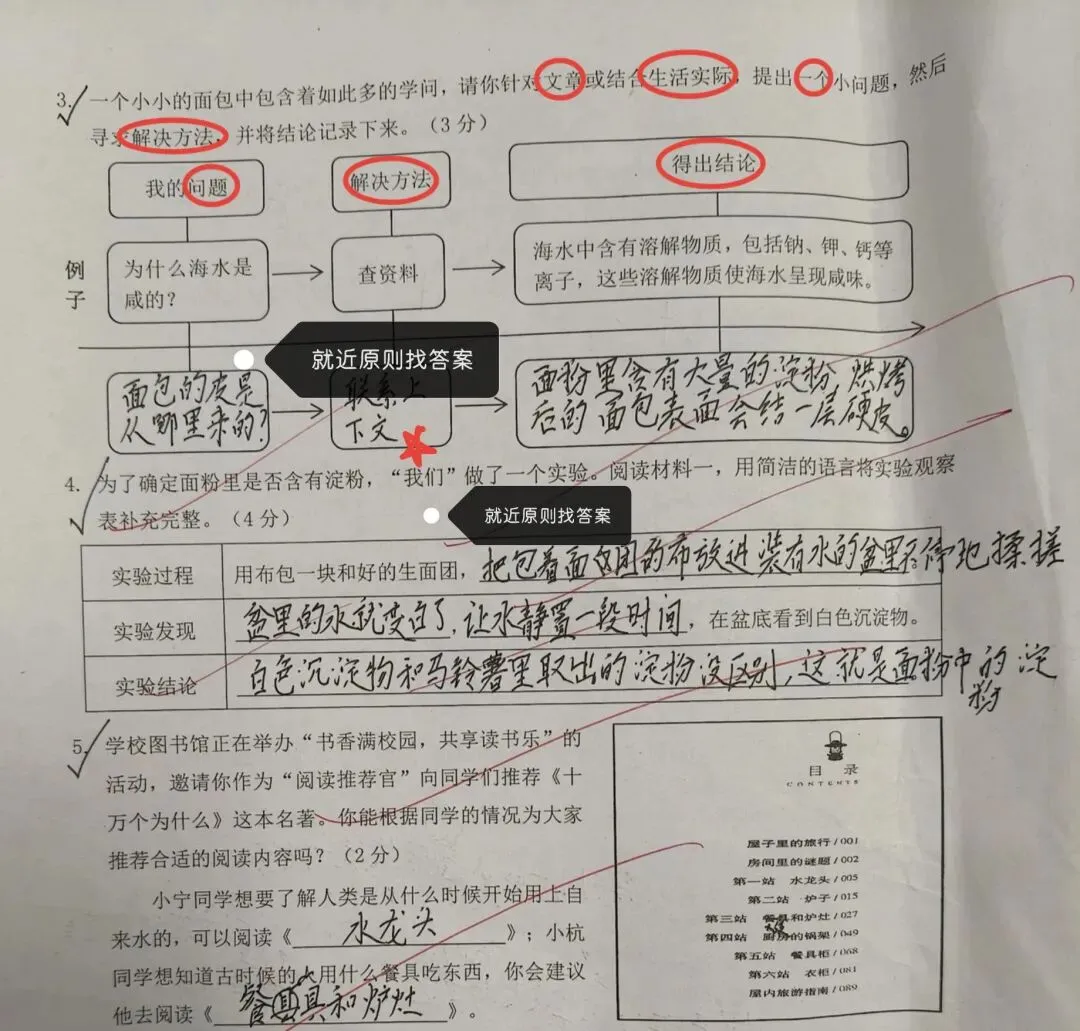 3. 一个小小的面包中包含着如此多的学问，请你针对文章或结合生活实际，提出一个小问题，然后
寻求解决方法，并将结论记录下来。（3分）
我的问题
解决方法
得出结论
例子
为什么海水是
咸的？
查资料
海水中含有溶解物质，包括钠、钾、钙等
离子，这些溶解物质使海水呈现咸味。
就近原则找答案
面包的皮是
从哪里来的？
联系上
下文
面粉里含有大量的淀粉，烘烤
后的面包表面会结一层硬皮。
4. 为了确定面粉里是否含有淀粉，“我们”做了一个实验。阅读材料一，用简洁的语言将实验观察
表补充完整。（4分）
就近原则找答案
实验过程 用布包一块和好的生面团，把包着面团的布放进装有水的盆里不停地揉搓
实验发现 盆里的水就变白了，让水静置一段时间，在盆底看到白色沉淀物。
实验结论 白色沉淀物和马铃薯里取出的淀粉没区别，这就是面粉中的淀
粉
5. 学校图书馆正在举办“书香满校园，共享读书乐”的
活动，邀请你作为“阅读推荐官”向同学们推荐《十
万个为什么》这本名著。你能根据同学的情况为大家
推荐合适的阅读内容吗？（2分）
小宁同学想要了解人类是从什么时候开始用上自
来水的，可以阅读《水龙头》；小杭
同学想知道古时候的人用什么餐具吃东西，你会建议
他去阅读《餐具和炉灶》。
目 录
CONTENTS
屋子里的旅行 / 001
房间里的谜题 / 002
第一站 水龙头 / 005
第二站 炉子 / 015
第三站 餐具和炉灶 / 027
第四站 厨房的锅架 / 049
第五站 餐具柜 / 068
第六站 衣柜 / 081
屋内旅游指南 / 089